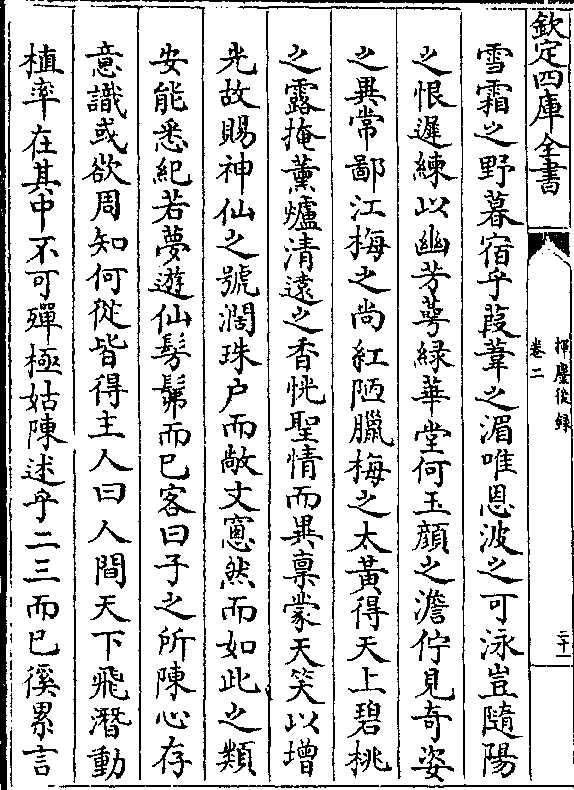 欽定四庫全書
揮麈後録
卷二
二十一
雪霜之野暮宿乎葭葦之湄唯恩波之可泳豈隨陽
之恨遲練以幽芳萼緑華堂何玉顔之澹佇見奇姿
之異常鄙江梅之尚紅陋臘梅之太黄得天上碧桃
之露掩薰爐清遠之香恍聖情而異禀蒙天笑以增
光故賜神仙之號濶珠户而敞丈窻然而如此之類
安能悉紀若夢遊仙髣髴而已客曰子之所陳心存
意識或欲周知何從皆得主人曰人間天下飛潛動
植率在其中不可殫極姑陳述乎二三而已徯累言